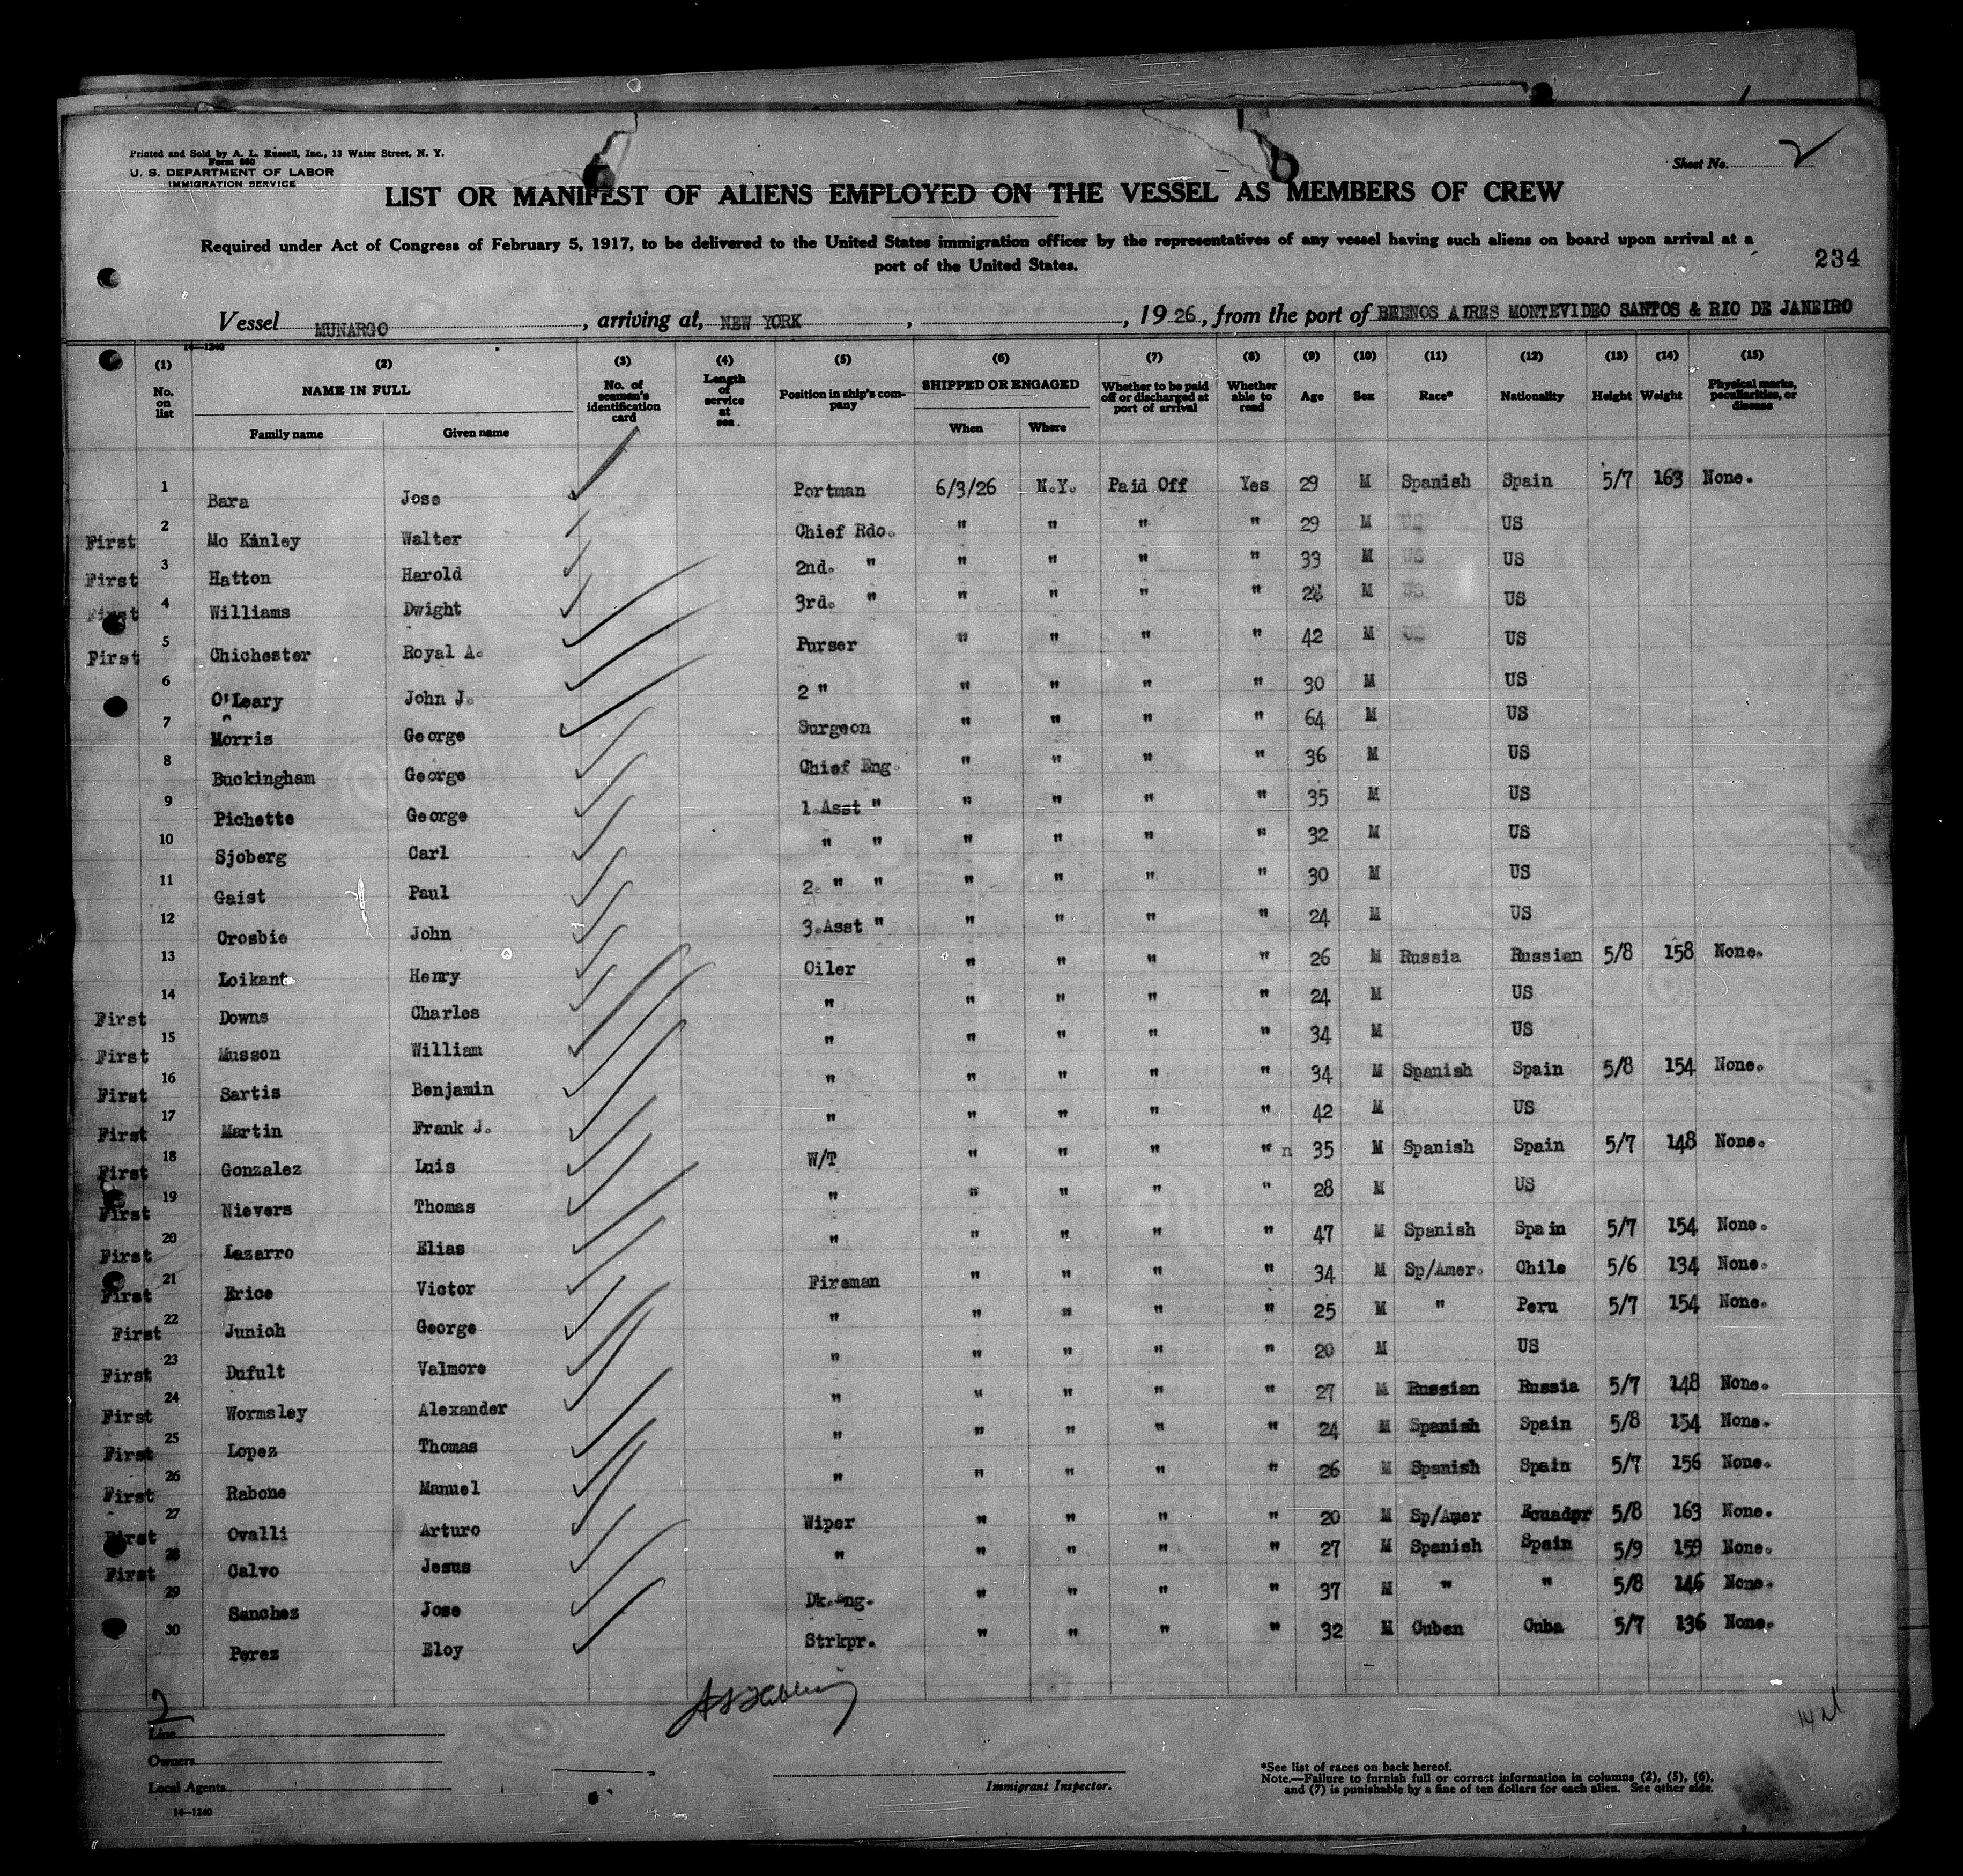 Printed and Sold by A. L. Russell, Inc., 13 Water Street, N. Y.
Form 680
U. S. DEPARTMENT OF LABOR
IMMIGRATION SERVICE
Sheet No. 2
LIST OR MANIFEST OF ALIENS EMPLOYED ON THE VESSEL AS MEMBERS OF CREW
Required under Act of Congress of February 5, 1917, to be delivered to the United States immigration officer by the representatives of any vessel having such aliens on board upon arrival at a
port of the United States.
234
Vessel MUNARGO, arriving at, NEW YORK, , 1926, from the port of BUENOS AIRES MONTEVIDEO SANTOS & RIO DE JANEIRO
14—1240
(1) (2) (3) (4) (5) (6) (7) (8) (9) (10) (11) (12) (13) (14) (15)
No. on list NAME IN FULL Family name Given name No. of seaman's identification card Length of service at sea. Position in ship's company SHIPPED OR ENGAGED When Where Whether to be paid off or discharged at port of arrival Whether able to read Age Sex Race* Nationality Height Weight Physical marks, peculiarities, or disease
1 Bara Jose Portman 6/3/26 N.Y. Paid Off Yes 29 M Spanish Spain 5/7 163 None.
First 2 Mc Kinley Walter Chief Rdo. " " " " 29 M US US
First 3 Hatton Harold 2nd. " " " " " 33 M US US
First 4 Williams Dwight 3rd. " " " " " M US US
First 5 Chichester Royal A. Purser " " " " 42 M US US
6 O'Leary John J. 2 " " " " " 30 M US
7 Morris George Surgeon " " " " 64 M US
8 Buckingham George Chief Eng. " " " " 36 M US
9 Pichette George 1.Asst " " " " " 35 M US
10 Sjoberg Carl " " " " " " 32 M US
11 Gaist Paul 2. " " " " " " 30 M US
12 Crosbie John 3.Asst " " " " " 24 M US
13 Loikant Henry Oiler " " " " 26 M Russia Russian 5/8 158 None.
First 14 Downs Charles " " " " " 24 M US
First 15 Musson William " " " " " 34 M US
First 16 Sartis Benjamin " " " " " 34 M Spanish Spain 5/8 154 None.
First 17 Martin Frank J. " " " " " 42 M US
First 18 Gonzalez Luis W/T " " " " n 35 M Spanish Spain 5/7 148 None.
First 19 Nievers Thomas " " " " " 28 M US
First 20 Lazarro Elias " " " " " 47 M Spanish Spain 5/7 154 None.
First 21 Erice Victor Fireman " " " " 34 M Sp/Amer. Chile 5/6 134 None.
First 22 Junich George " " " " " 25 M " Peru 5/7 154 None.
First 23 Dufult Valmore " " " " " 20 M US
First 24 Wormsley Alexander " " " " " 27 M Russian Russia 5/7 148 None.
First 25 Lopez Thomas " " " " " 24 M Spanish Spain 5/8 154 None.
First 26 Rabone Manuel " " " " " 26 M Spanish Spain 5/7 156 None.
First 27 Ovalli Arturo Wiper " " " " 20 M Sp/Amer Ecuadpr 5/8 163 None.
First 28 Calvo Jesus " " " " " 27 M Spanish Spain 5/9 159 None.
29 Sanchez Jose Dk.Eng. " " " " 37 M " " 5/8 146 None.
30 Perez Eloy Strkpr. " " " " 32 M Cuben Cuba 5/7 136 None.
2
Line
Owners
Local Agents
14—1240
Immigrant Inspector.
*See list of races on back hereof.
Note.—Failure to furnish full or correct information in columns (2), (5), (6),
and (7) is punishable by a fine of ten dollars for each alien. See other side.